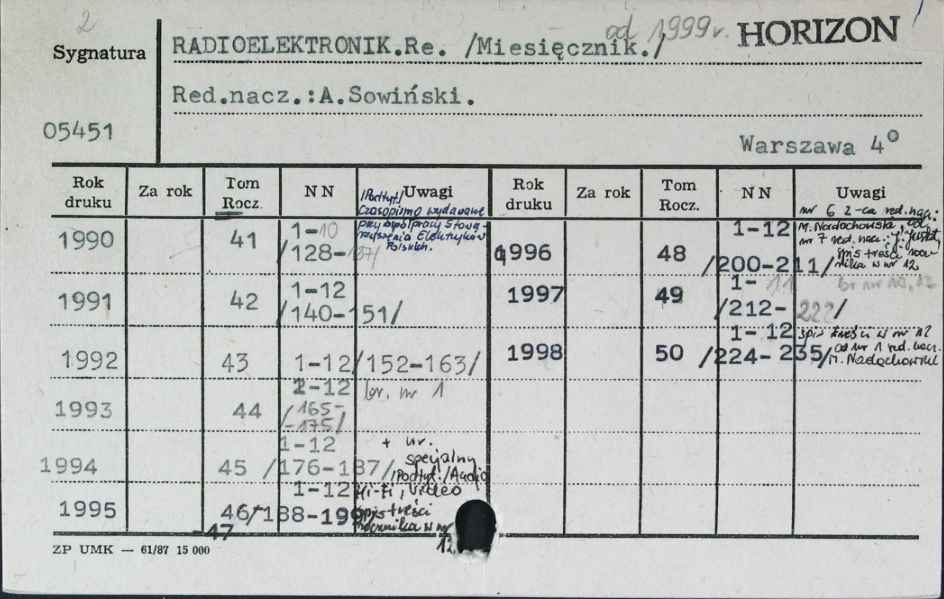 2
Sygnatura
RADIOELEKTRONIK.Re. /Miesięcznik./
od 1999 r.
HORIZON
Red.nacz.:A.Sowiński.
05451
Warszawa 4°
Rok druku Za rok Tom Rocz. NN Uwagi Rok druku Za rok Tom Rocz. NN Uwagi
1990 41 1-10
/128-137/
/Podtyt./
Czasopismo wydawane
przy współpracy Stowa-
rzyszenia Elektryków
Polskich.
1991 42 1-12
/140-151/
1992 43 1-12 /152-163/
1993 44 2-12 br. nr 1
/165-
-175/
1994 45 1-12
/176-187/
+ nr.
specjalny
/Podtyt./Audio
Hi-Fi, Video
1995 46/ 1-12
-47 /188-199
spis treści
rocznika w nr
12
1996 48 1-12
/200-211/
nr 6 z-ca red. nacz.
M. Nadachowski, od
nr 7 red. nacz.:
spis treści rocz-
nika w nr 12
1997 49 1-11
/212-222/
br nr 10, 12
1998 50 1-12
/224-235/
spis treści w nr 12
od nr 1 red. nacz.
M. Nadachowski
ZP UMK — 61/87 15 000